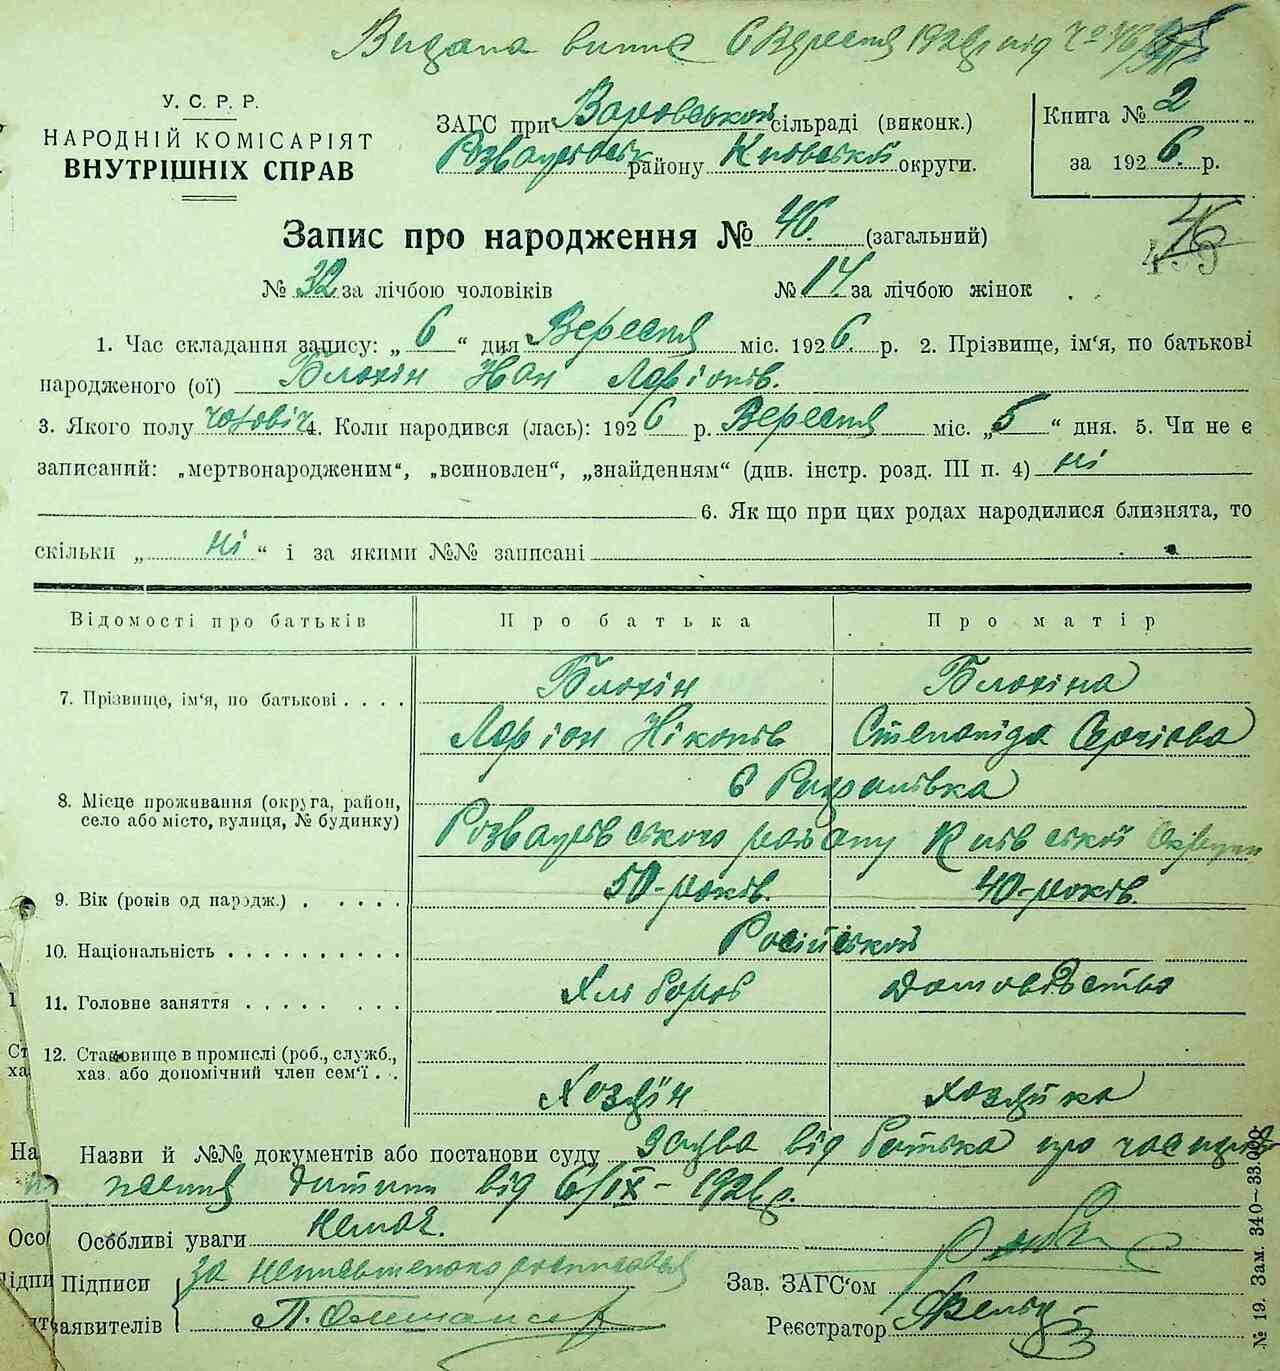 Видана випис 6 Вересня 1926 р. під № 46
У. С. Р. Р.
НАРОДНІЙ КОМІСАРІЯТ
ВНУТРІШНІХ СПРАВ
ЗАГС при Варовській сільраді (виконк.)
Розважівськ району Київської округи.
Книга № 2
за 1926 р.
Запис про народження № 46. (загальний)
46
№ 32 за лічбою чоловіків № 14 за лічбою жінок
1. Час складання запису: „ 6 “ дня Вересня міс. 1926. р. 2. Прізвище, ім'я, по батькові
народженого (ої) Блохін Іван Ларіонів.
3. Якого полу чоловіч 4. Коли народився (лась): 1926 р. Вересня міс. „ 5 “ дня. 5. Чи не є
записаний: „мертвонародженим“, „всиновлен“, „знайденням“ (див. інстр. розд. III п. 4) ні
6. Як що при цих родах народилися близнята, то
скільки „ ні “ і за якими №№ записані
Відомості про батьків Про батька Про матір
7. Прізвище, ім'я, по батькові Блохін Блохіна
Ларіон Ніконів Степаніда Сергієва
8. Місце проживання (округа, район,
село або місто, вулиця, № будинку)
Розважівського району Київської Округи
9. Вік (років од народж.) 50-років. 40-років.
10. Національність Російської
11. Головне заняття Хлібороб Домовівство
12. Становище в промислі (роб., служб.,
хаз. або допомічний член сем'ї
Хозяїн хозяйка
Назви й №№ документів або постанови суду заява від батька про час народ
ження дитини від 6/IX-1926 р.
Особливі уваги немає.
Підписи за неписьменного росписався
заявителів
Зав. ЗАГС'ом
Реєстратор
№ 19. Зам. 340—33.000.